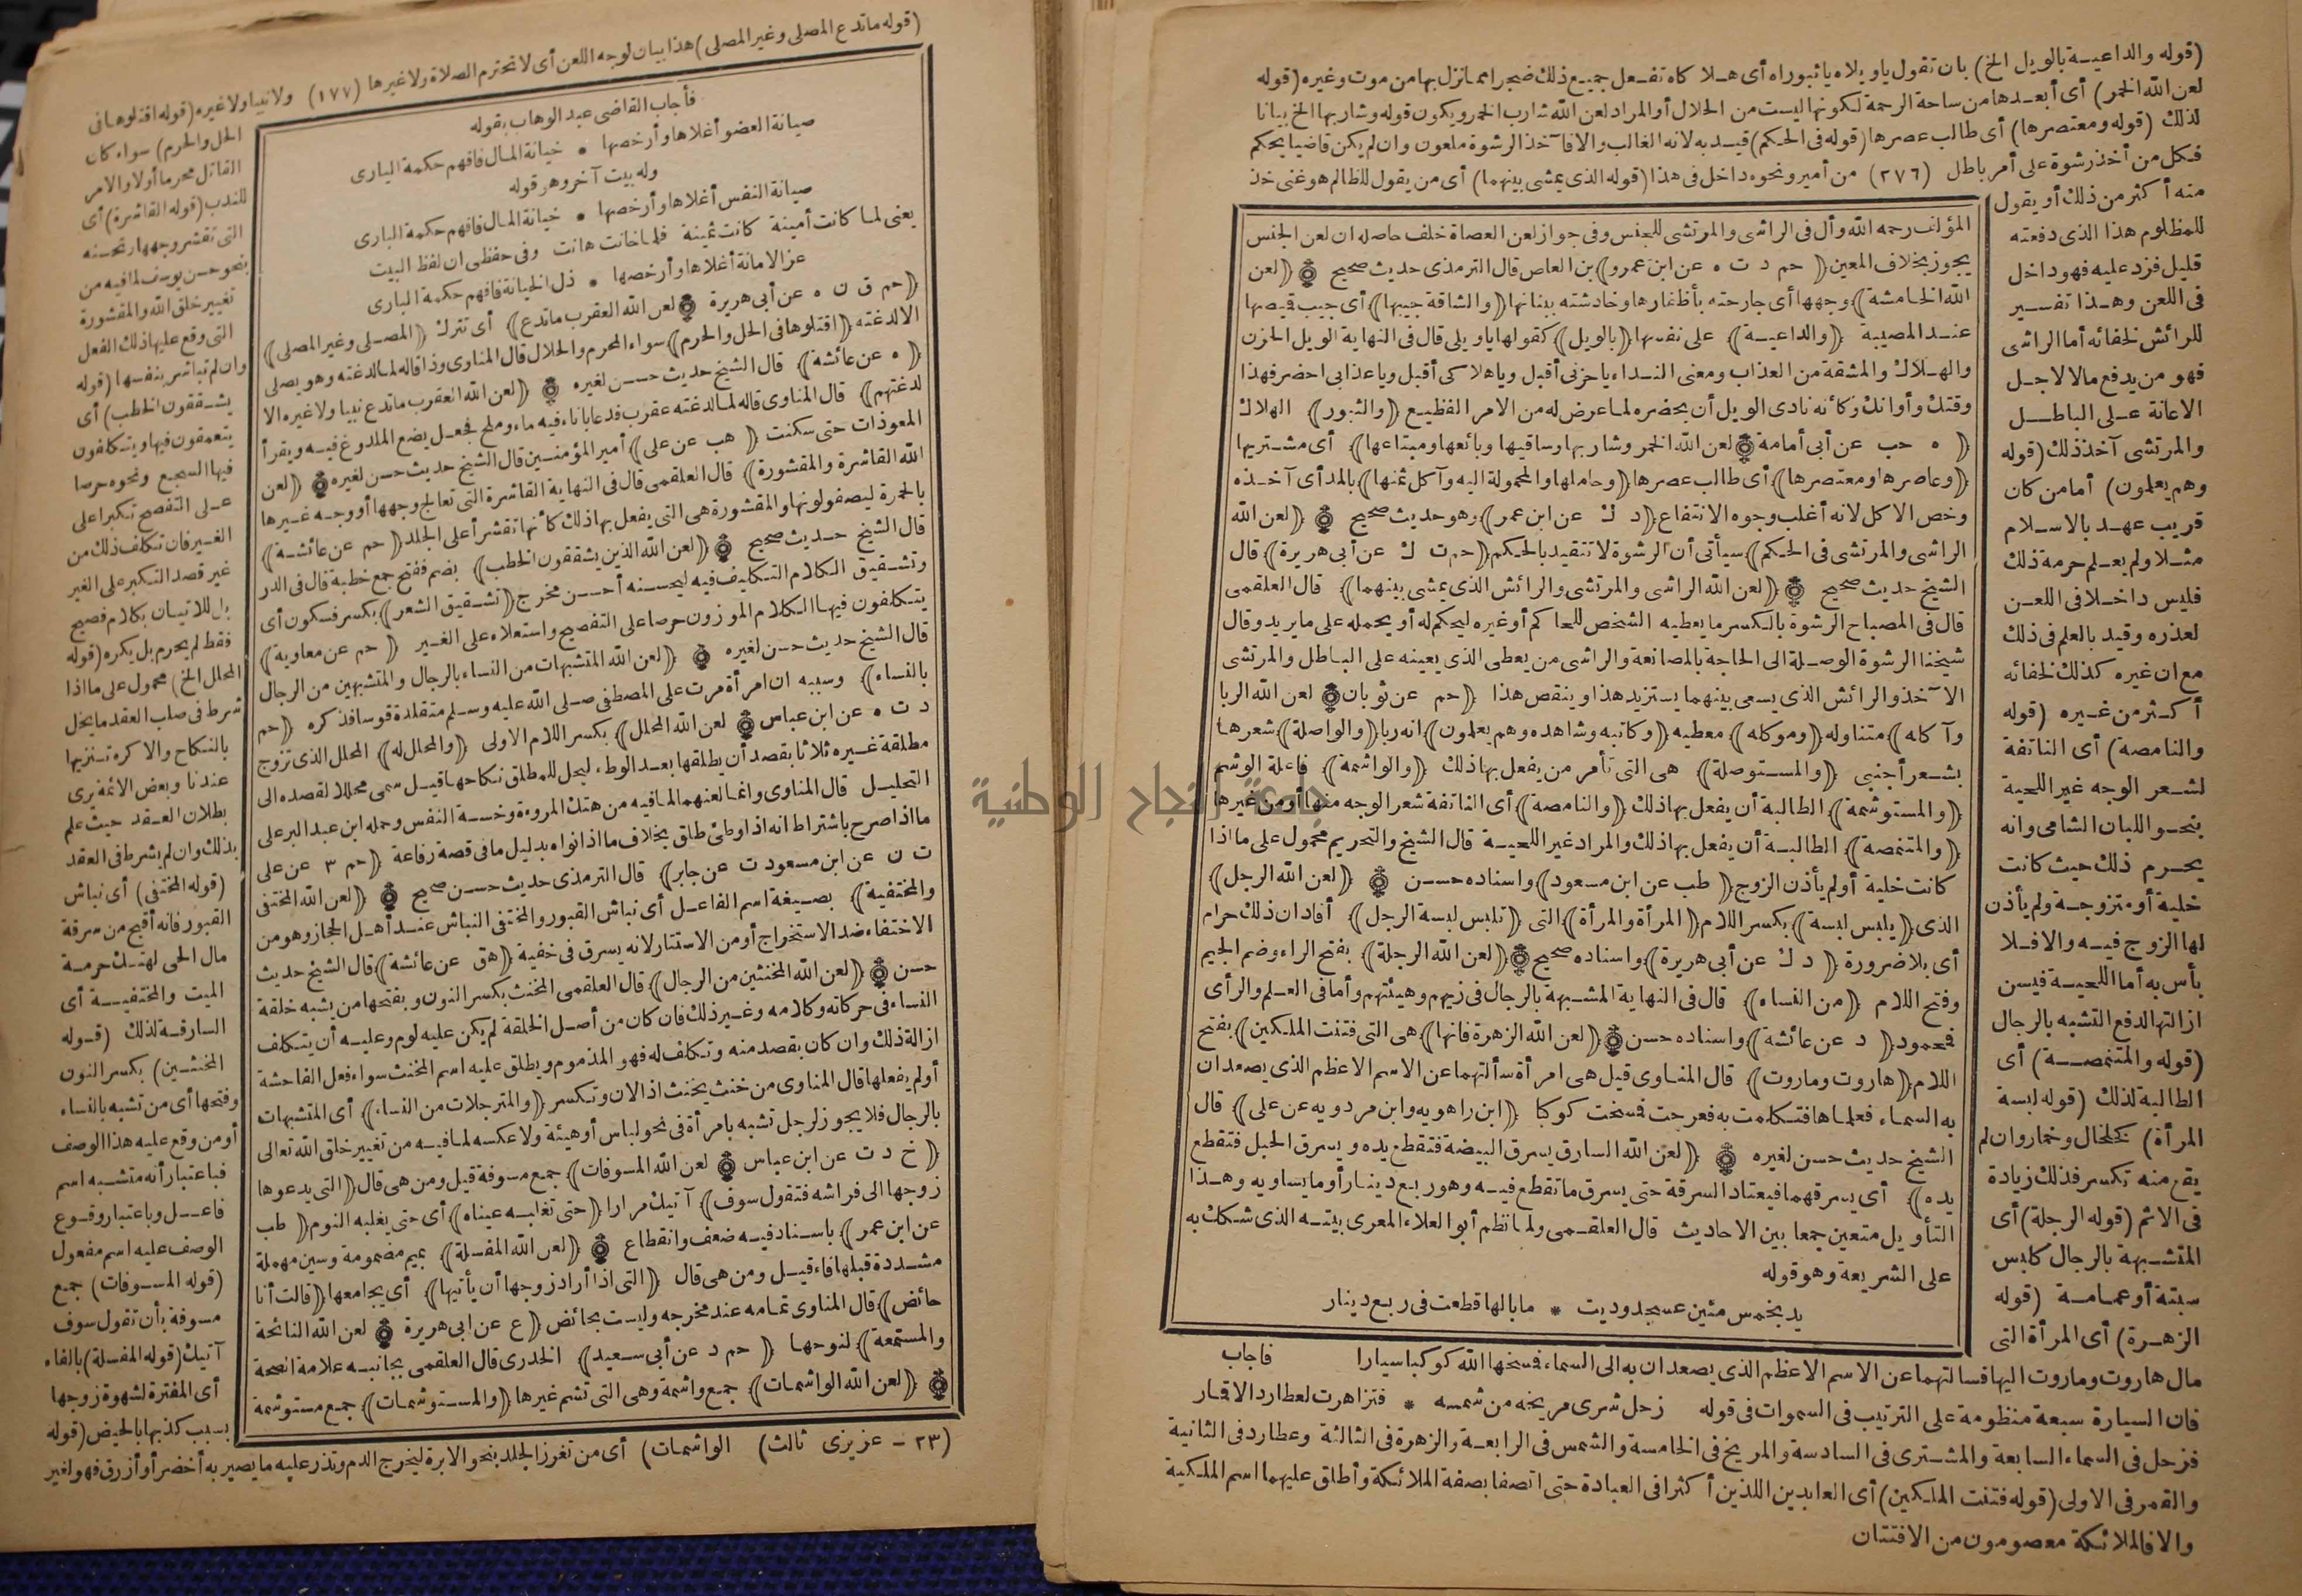 (قوله والداعية بالويل الخ) بان تقول ياويلاه ياثبوراه أى هلا كاه تفعل جميع ذلك ضجرا مما نزل بها من موت وغيره (قوله
لعن الله الخمر) أى أبعدها من ساحة الرحمة لكونها ليست من الحلال أو المراد لعن الله شارب الخمر ويكون قوله وشاربها الخ بيانا
لذلك (قوله ومعتصرها) أى طالب عصرها (قوله فى الحكم) قيد به لانه الغالب والا فآخذ الرشوة ملعون وان لم يكن قاضيا يحكم
فكل من أخذ رشوة على أمر باطل (٢٧٦) من أمير ونحوه داخل فى هذا (قوله الذى يمشى بينهما) أى من يقول للظالم هو غنى خذ
منه أكثر من ذلك أو يقول
للمظلوم هذا الذى دفعته
قليل فزد عليه فهو داخل
فى اللعن وهذا تفسير
للرائش لخفائه أما الراشى
فهو من يدفع مالا لاجل
الاعانة على الباطل
والمرتشى آخذ ذلك (قوله
وهم يعلمون) أما من كان
قريب عهد بالاسلام
مثلا ولم يعلم حرمة ذلك
فليس داخلا فى اللعن
لعذره وقيد بالعلم فى ذلك
مع ان غيره كذلك لخفائه
أكثر من غيره (قوله
والنامصة) أى الناتفة
لشعر الوجه غير اللحية
بنحو اللبان الشامى وانه
يحرم ذلك حيث كانت
خلية أو متزوجة ولم يأذن
لها الزوج فيه والا فلا
بأس به أما اللحية فيسن
ازالتها لدفع التشبه بالرجال
(قوله والمتنمصة) أى
الطالبة لذلك (قوله لبسة
المرأة) كخلخال وخمار وان لم
يقع منه تكسر فذلك زيادة
فى الاثم (قوله الرجلة) أى
المتشبهة بالرجال كلبس
سبتة أو عمامة (قوله
الزهرة) أى المرأة التى
المؤلف رحمه الله وأل فى الراشى والمرتشى للجنس وفى جواز لعن العصاة خلف حاصله ان لعن الجنس
يجوز بخلاف المعين (حم د ت ه عن ابن عمرو) بن العاص قال الترمذى حديث صحيح (لعن
الله الخامشة) وجهها أى جارحته بأظفارها وخادشته ببنانها (والشاقة جيبها) أى جيب قيصها
عند المصيبة (والداعية) على نفسها (بالويل) كقولها ياويلى قال فى النهاية الويل الحزن
والهلاك والمشقة من العذاب ومعنى النداء ياحزنى أقبل وياهلاكى أقبل وياعذابى احضر فهذا
وقتك وأوانك وكأنه نادى الويل أن يحضره لما عرض له من الامر الفظيع (والثبور) الهلاك
(ه حب عن أبى أمامة لعن الله الخمر وشاربها وساقيها وبائعها ومبتاعها) أى مشتريها
(وعاصرها ومعتصرها) أى طالب عصرها (وحاملها والمحمولة اليه وآكل ثمنها) بالمد أى آخذه
وخص الاكل لانه أغلب وجوه الانتفاع (د ك عن ابن عمر) وهو حديث صحيح (لعن الله
الراشى والمرتشى فى الحكم) سيأتى أن الرشوة لا تتقيد بالحكم (حم ت ك عن أبى هريرة) قال
الشيخ حديث صحيح (لعن الله الراشى والمرتشى والرائش الذى يمشى بينهما) قال العلقمى
قال فى المصباح الرشوة بالكسر ما يعطيه الشخص للحاكم أو غيره ليحكم له أو يحمله على ما يريد وقال
شيخنا الرشوة الوصلة الى الحاجة بالمصانعة والراشى من يعطى الذى يعينه على الباطل والمرتشى
الآخذ والرائش الذى يسعى بينهما يستزيد هذا وينقص هذا (حم عن ثوبان لعن الله الربا
وآكله) متناوله (وموكله) معطيه (وكاتبه وشاهده وهم يعلمون) انه ربا (والواصلة) شعرها
بشعر أجنبى (والمستوصلة) هى التى تأمر من يفعل بها ذلك (والواشمة) فاعلة الوشم
(والمستوشمة) الطالبة أن يفعل بها ذلك (والنامصة) أى الناتفة شعر الوجه منها أو من غيرها
(والمتنمصة) الطالبة أن يفعل بها ذلك والمراد غير اللحية قال الشيخ والتحريم محمول على ما اذا
كانت خلية أو لم يأذن الزوج (طب عن ابن مسعود) واسناده حسن (لعن الله الرجل)
الذى (يلبس لبسة) بكسر اللام (المرأة والمرأة) التى (تلبس لبسة الرجل) أفاد ان ذلك حرام
أى بلا ضرورة (د ك عن أبى هريرة) واسناده صحيح (لعن الله الرجلة) بفتح الراء وضم الجيم
وفتح اللام (من النساء) قال فى النهاية المشبهة بالرجال فى زيهم وهيئتهم وأما فى العلم والرأى
فمحمود (د عن عائشة) واسناده حسن (لعن الله الزهرة فانها) هى التى فتنت الملكين) بفتح
اللام (هاروت وماروت) قال المناوى قيل هى امرأة سألتهما عن الاسم الاعظم الذى يصعدان
به السماء فعلماها فتكلمت به فعرجت فمسخت كوكبا (ابن راهويه وابن مردويه عن على) قال
الشيخ حديث حسن لغيره (لعن الله السارق يسرق البيضة فتقطع يده ويسرق الحبل فتقطع
يده) أى يسرقهما فيعتاد السرقة حتى يسرق ما تقطع فيه وهو ربع دينار أو ما يساويه وهذا
التأويل متعين جمعا بين الاحاديث قال العلقمى ولما نظم أبو العلاء المعرى بيته الذى شكك به
على الشريعة وهو قوله
يد بخمس مئين عسجد وديت * ما بالها قطعت فى ربع دينار
فاجاب
مال هاروت وماروت اليها فسالتهما عن الاسم الاعظم الذى يصعدان به الى السماء فمسخها الله كوكبا سيارا
فان السيارة سبعة منظومة على الترتيب فى السموات فى قوله زحل شرى مريخه من شمسه * فتزاهرت لعطارد الاقمار
فزحل فى السماء السابعة والمشترى فى السادسة والمريخ فى الخامسة والشمس فى الرابعة والزهرة فى الثالثة وعطارد فى الثانية
والقمر فى الاولى (قوله فتنت الملكين) أى العابدين اللذين أكثرا فى العبادة حتى اتصفا بصفة الملائكة وأطلق عليهما اسم الملكية
والا فالملائكة معصومون من الافتتان
(قوله ماتدع المصلى وغير المصلى) هذا بيان لوجه اللعن أى لا تحترم الصلاة ولا غيرها (١٧٧) ولا نبيا ولا غيره (قوله اقتلوها فى
الحل والحرم) سواء كان
القاتل محرما أو لا والامر
للندب (قوله القاشرة) أى
التى تقشر وجهها لتحسنه
بنحو حسن يوسف لما فيه من
تغيير خلق الله والمقشورة
التى وقع عليها ذلك الفعل
وان لم تباشر بنفسها (قوله
يشققون الخطب) أى
يتعمقون فيها ويتكلفون
فيها السجع ونحوه حرصا
على التفصح تكبرا على
الغير فان تكلف ذلك من
غير قصد التكبر على الغير
بل للاتيان بكلام فصيح
فقط لم يحرم بل يكره (قوله
المحلل الخ) محمول على ما اذا
شرط فى صلب العقد ما يخل
بالنكاح والا كره تنزيها
عندنا وبعض الائمة يرى
بطلان العقد حيث علم
بذلك وان لم يشرط فى العقد
(قوله المختفى) أى نباش
القبور فانه أقبح من سرقة
مال الحى لهتك حرمة
الميت والمختفية أى
السارقة لذلك (قوله
المخنثين) بكسر النون
وفتحها أى من تشبه بالنساء
أو من وقع عليه هذا الوصف
فباعتبار أنه متشبه اسم
فاعل وباعتبار وقوع
الوصف عليه اسم مفعول
(قوله المسوفات) جمع
مسوفة بأن تقول سوف
آتيك (قوله المفسلة) بالفاء
أى المفترة لشهوة زوجها
بسبب كذبها بالحيض (قوله
فأجاب القاضى عبد الوهاب بقوله
صيانة العضو أغلاها وأرخصها * خيانة المال فافهم حكمة البارى
وله بيت آخر وهو قوله
صيانة النفس أغلاها وأرخصها * خيانة المال فافهم حكمة البارى
يعنى لما كانت أمينة كانت ثمينة فلما خانت هانت وفى حفظى ان لفظ البيت
عز الامانة أغلاها وأرخصها * ذل الخيانة فافهم حكمة البارى
(حم ق ن ه عن أبى هريرة لعن الله العقرب ماتدع) أى تترك (المصلى وغير المصلى)
الا لدغته (اقتلوها فى الحل والحرم) سواء المحرم والحلال قال المناوى وذا قاله لما لدغته وهو يصلى
(ه عن عائشة) قال الشيخ حديث حسن لغيره (لعن الله العقرب ماتدع نبيا ولا غيره الا
لدغتهم) قال المناوى قاله لما لدغته عقرب فدعا باناء فيه ماء وملح فجعل يضع الملدوغ فيه ويقرأ
المعوذات حتى سكنت (هب عن على) أمير المؤمنين قال الشيخ حديث حسن لغيره (لعن
الله القاشرة والمقشورة) قال العلقمى قال فى النهاية القاشرة التى تعالج وجهها أو وجه غيرها
بالحمرة ليصفو لونها والمقشورة هى التى يفعل بها ذلك كأنها تقشر أعلى الجلد (حم عن عائشة)
قال الشيخ حديث صحيح (لعن الله الذين يشققون الخطب) بضم ففتح جمع خطبة قال فى الدر
وتشقيق الكلام التكليف فيه ليحسنه أحسن مخرج (تشقيق الشعر) بكسر فسكون أى
يتكلفون فيها الكلام الموزون حرصا على التفصح واستعلاء على الغير (حم عن معاوية)
قال الشيخ حديث حسن لغيره (لعن الله المتشبهات من النساء بالرجال والمتشبهين من الرجال
بالنساء) وسببه ان امرأة مرت على المصطفى صلى الله عليه وسلم متقلدة قوسا فذكره (حم
د ت ه عن ابن عباس لعن الله المحلل) بكسر اللام الاولى (والمحلل له) المحلل الذى تزوج
مطلقة غيره ثلاثا بقصد أن يطلقها بعد الوطء ليحل للمطلق نكاحها قيل سمى محللا لقصده الى
التحليل قال المناوى وانما لعنهما لما فيه من هتك المروءة وخسة النفس وحمله ابن عبد البر على
ما اذا صرح باشتراط انه اذا وطئ طلق بخلاف ما اذا نواه بدليل ما فى قصة رفاعة (حم ٣ عن على
ت ن عن ابن مسعود ت عن جابر) قال الترمذى حديث حسن صحيح (لعن الله المختفى
والمختفية) بصيغة اسم الفاعل أى نباش القبور والمختفى النباش عند أهل الحجاز وهو من
الاختفاء ضد الاستخراج أو من الاستتار لانه يسرق فى خفية (هق عن عائشة) قال الشيخ حديث
حسن (لعن الله المخنثين من الرجال) قال العلقمى المخنث بكسر النون وبفتحها من يشبه خلقة
النساء فى حركاته وكلامه وغير ذلك فان كان من أصل الخلقة لم يكن عليه لوم وعليه أن يتكلف
ازالة ذلك وان كان بقصد منه وتكلف له فهو المذموم ويطلق عليه اسم المخنث سواء فعل الفاحشة
أو لم يفعلها قال المناوى من خنث يخنث اذا لان وتكسر (والمترجلات من النساء) أى المتشبهات
بالرجال فلا يجوز لرجل تشبه بامرأة فى نحو لباس أو هيئة ولا عكسه لما فيه من تغيير خلق الله تعالى
(خ د ت عن ابن عباس لعن الله المسوفات) جمع مسوفة قيل ومن هى قال (التى يدعوها
زوجها الى فراشه فتقول سوف) آتيك مرارا (حتى تغلبه عيناه) أى حتى يغلبه النوم (طب
عن ابن عمر) باسناد فيه ضعف وانقطاع (لعن الله المفسلة) بميم مضمومة وسين مهملة
مشددة قبلها فاء قيل ومن هى قال (التى اذا أراد زوجها أن يأتيها) أى يجامعها (قالت أنا
حائض) قال المناوى تمامه عند مخرجه وليست بحائض (ع عن ابى هريرة لعن الله النائحة
والمستمعة) لنوحها (حم د عن أبى سعيد) الخدرى قال العلقمى بجانبه علامة الصحة
(لعن الله الواشمات) جمع واشمة وهى التى تشم غيرها (والمستوشمات) جمع مستوشمة
(٢٣ - عزيزى ثالث) الواشمات) أى من تغرز الجلد بنحو الابرة ليخرج الدم وتذر عليه ما يصير به أخضر أو أزرق فهو لغير
جامعة النجاح الوطنية